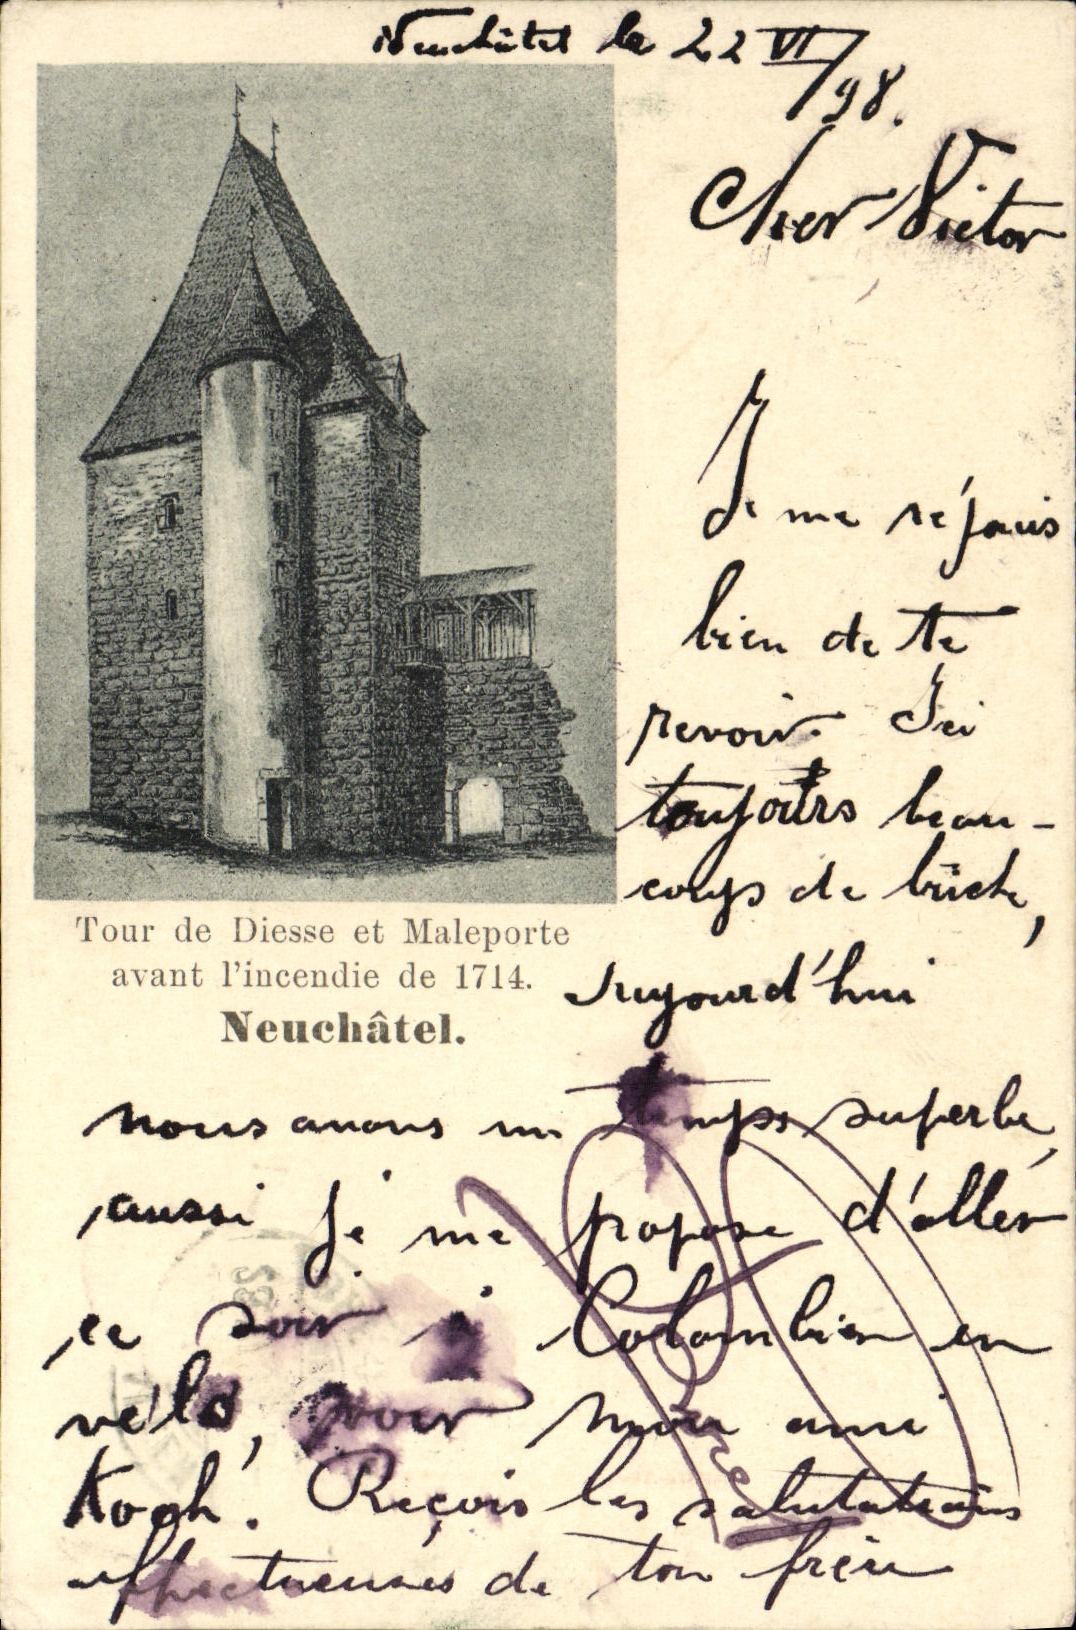 Neuchâtel le 22 VI/98.
Cher Victor
Je me réjouis
bien de te
revoir. Ici
toujours beau-
coups de bûche,
Aujourd'hui
Tour de Diesse et Maleporte
avant l'incendie de 1714.
Neuchâtel.
nous avons un temps superbe,
aussi je me propose d'aller
ce soir à Colombier en
vélo, voir mon ami
Koch. Reçois les salutations
affectueuses de ton frère